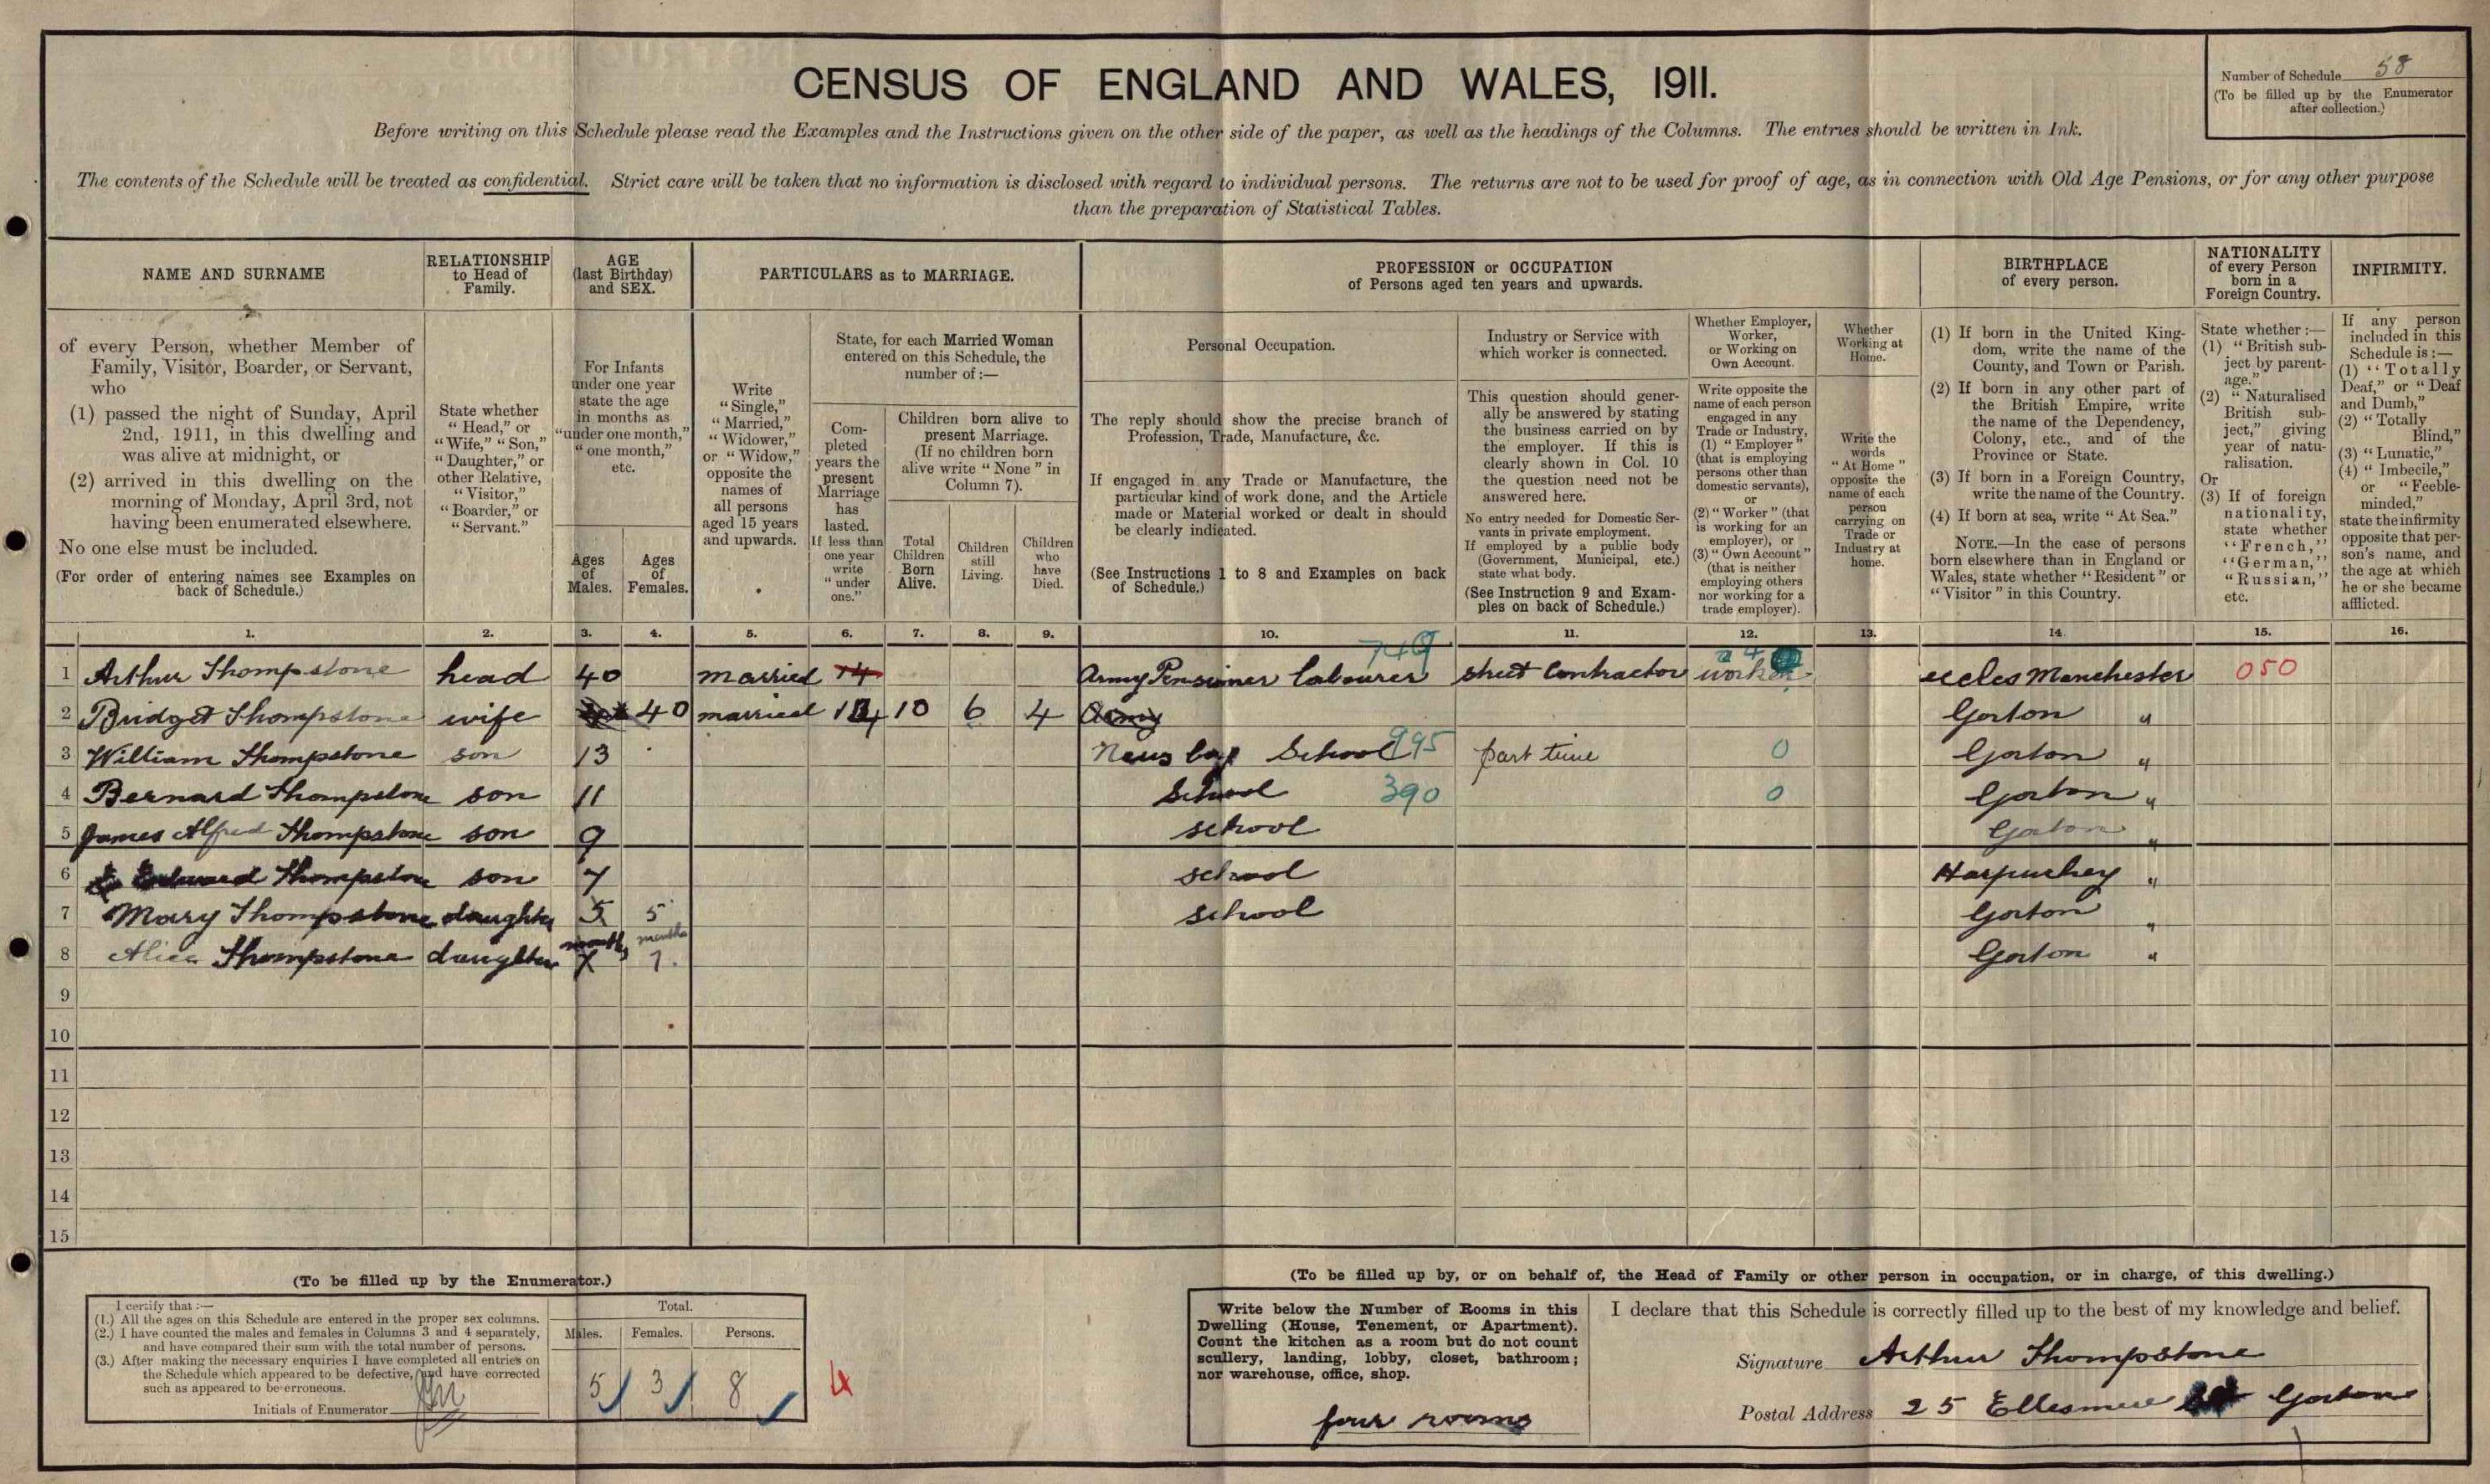 CENSUS OF ENGLAND AND WALES, 1911.
Number of Schedule 58
(To be filled up by the Enumerator
after collection.)
Before writing on this Schedule please read the Examples and the Instructions given on the other side of the paper, as well as the headings of the Columns. The entries should be written in Ink.
The contents of the Schedule will be treated as confidential. Strict care will be taken that no information is disclosed with regard to individual persons. The returns are not to be used for proof of age, as in connection with Old Age Pensions, or for any other purpose
than the preparation of Statistical Tables.
NAME AND SURNAME
of every Person, whether Member of
Family, Visitor, Boarder, or Servant,
who
(1) passed the night of Sunday, April
2nd, 1911, in this dwelling and
was alive at midnight, or
(2) arrived in this dwelling on the
morning of Monday, April 3rd, not
having been enumerated elsewhere.
No one else must be included.
(For order of entering names see Examples on
back of Schedule.)
RELATIONSHIP
to Head of
Family.
State whether
"Head," or
"Wife," "Son,"
"Daughter," or
other Relative,
"Visitor,"
"Boarder," or
"Servant."
AGE
(last Birthday)
and SEX.
For Infants
under one year
state the age
in months as
"under one month,"
"one month,"
etc.
Ages
of
Males.
Ages
of
Females.
PARTICULARS as to MARRIAGE.
Write
"Single,"
"Married,"
"Widower,"
or "Widow,"
opposite the
names of
all persons
aged 15 years
and upwards.
State, for each Married Woman
entered on this Schedule, the
number of:—
Com-
pleted
years the
present
Marriage
has
lasted.
If less than
one year
write
"under
one."
Children born alive to
present Marriage.
(If no children born
alive write "None" in
Column 7).
Total
Children
Born
Alive.
Children
still
Living.
Children
who
have
Died.
PROFESSION or OCCUPATION
of Persons aged ten years and upwards.
Personal Occupation.
The reply should show the precise branch of
Profession, Trade, Manufacture, &c.
If engaged in any Trade or Manufacture, the
particular kind of work done, and the Article
made or Material worked or dealt in should
be clearly indicated.
(See Instructions 1 to 8 and Examples on back
of Schedule.)
Industry or Service with
which worker is connected.
This question should gener-
ally be answered by stating
the business carried on by
the employer. If this is
clearly shown in Col. 10
the question need not be
answered here.
No entry needed for Domestic Ser-
vants in private employment.
If employed by a public body
(Government, Municipal, etc.)
state what body.
(See Instruction 9 and Exam-
ples on back of Schedule.)
Whether Employer,
Worker,
or Working on
Own Account.
Write opposite the
name of each person
engaged in any
Trade or Industry,
(1) "Employer"
(that is employing
persons other than
domestic servants),
or
(2) "Worker" (that
is working for an
employer), or
(3) "Own Account"
(that is neither
employing others
nor working for a
trade employer).
Whether
Working at
Home.
Write the
words
"At Home"
opposite the
name of each
person
carrying on
Trade or
Industry at
home.
BIRTHPLACE
of every person.
(1) If born in the United King-
dom, write the name of the
County, and Town or Parish.
(2) If born in any other part of
the British Empire, write
the name of the Dependency,
Colony, etc., and of the
Province or State.
(3) If born in a Foreign Country,
write the name of the Country.
(4) If born at sea, write "At Sea."
NOTE.—In the case of persons
born elsewhere than in England or
Wales, state whether "Resident" or
"Visitor" in this Country.
NATIONALITY
of every Person
born in a
Foreign Country.
State whether:—
(1) "British sub-
ject by parent-
age."
(2) "Naturalised
British sub-
ject," giving
year of natu-
ralisation.
Or
(3) If of foreign
nationality,
state whether
"French,"
"German,"
"Russian,"
etc.
INFIRMITY.
If any person
included in this
Schedule is:—
(1) "Totally
Deaf," or "Deaf
and Dumb,"
(2) "Totally
Blind,"
(3) "Lunatic,"
(4) "Imbecile,"
or "Feeble-
minded,"
state the infirmity
opposite that per-
son's name, and
the age at which
he or she became
afflicted.
1. 2. 3. 4. 5. 6. 7. 8. 9. 10. 11. 12. 13. 14. 15. 16.
749
1 Arthur Thompstone head 40 married 14 Army Pensioner labourer street Contractor worker eccles Manchester 050
2 Bridget Thompstone wife 40 married 14 10 6 4 Army Gorton "
3 William Thompstone son 13 News boy School 995 part time 0 Gorton "
4 Bernard Thompstone son 11 School 390 0 Gorton "
5 James Alfred Thompstone son 9 school Gorton "
6 Edward Thompstone son 7 school Harpurhey "
7 Mary Thompstone daughter 5 5 school Gorton "
8 Alice Thompstone daughter months 7 months 7. Gorton "
9
10
11
12
13
14
15
(To be filled up by the Enumerator.)
I certify that:—
(1.) All the ages on this Schedule are entered in the proper sex columns.
(2.) I have counted the males and females in Columns 3 and 4 separately,
and have compared their sum with the total number of persons.
(3.) After making the necessary enquiries I have completed all entries on
the Schedule which appeared to be defective, and have corrected
such as appeared to be erroneous.
Initials of Enumerator
Total.
Males. Females. Persons.
5 3 8
4
(To be filled up by, or on behalf of, the Head of Family or other person in occupation, or in charge, of this dwelling.)
Write below the Number of Rooms in this
Dwelling (House, Tenement, or Apartment).
Count the kitchen as a room but do not count
scullery, landing, lobby, closet, bathroom;
nor warehouse, office, shop.
four rooms
I declare that this Schedule is correctly filled up to the best of my knowledge and belief.
Signature Arthur Thompstone
Postal Address 25 Ellesmere Gorton